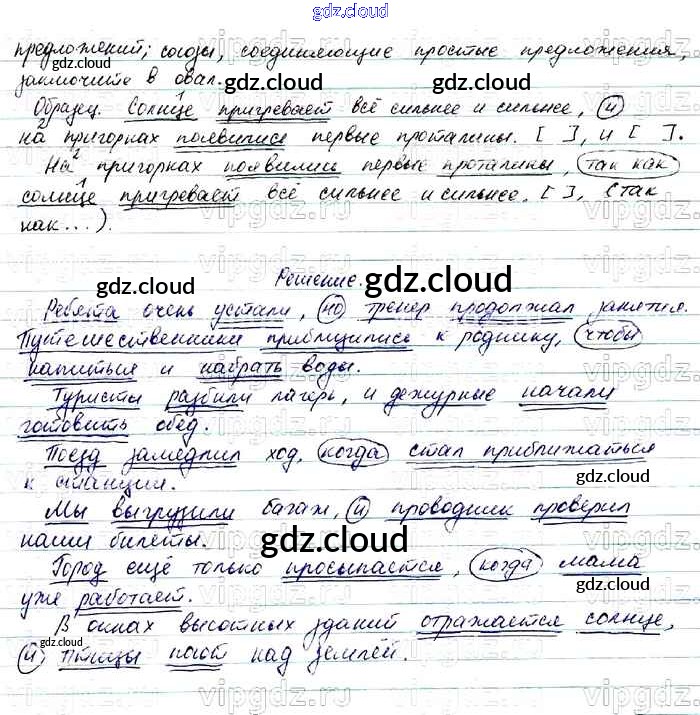 gdz.cloud
предложений; союзы, соединяющие простые предложения,
заключите в овал.
Образец. Солнце пригревает всё сильнее и сильнее, и
на пригорках появились первые проталины. [ ], и [ ].
На пригорках появились первые проталины, так как
солнце пригревает всё сильнее и сильнее. [ ], (так
как...).
Решение.
Ребята очень устали, но тренер продолжал занятия.
Путешественники приблизились к роднику, чтобы
напиться и набрать воды.
Туристы разбили лагерь, и дежурные начали
готовить обед.
Поезд замедлил ход, когда стал приближаться
к станции.
Мы выгрузили багаж, и проводник проверил
наши билеты.
Город ещё только просыпается, когда мама
уже работает.
В окнах высотных зданий отражается солнце,
и птицы поют над землёй.